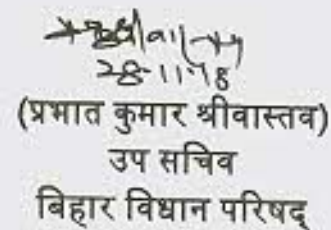 28-11-18
(प्रभात कुमार श्रीवास्तव)
उप सचिव
बिहार विधान परिषद्